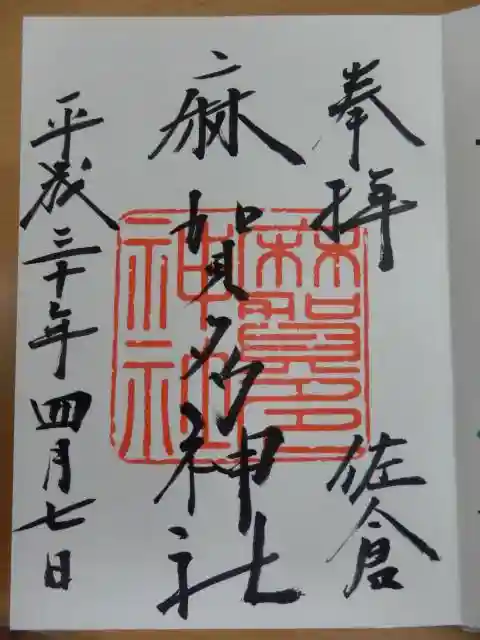 奉拝 佐倉
麻賀多神社
平成三十年四月七日
麻賀多
神社